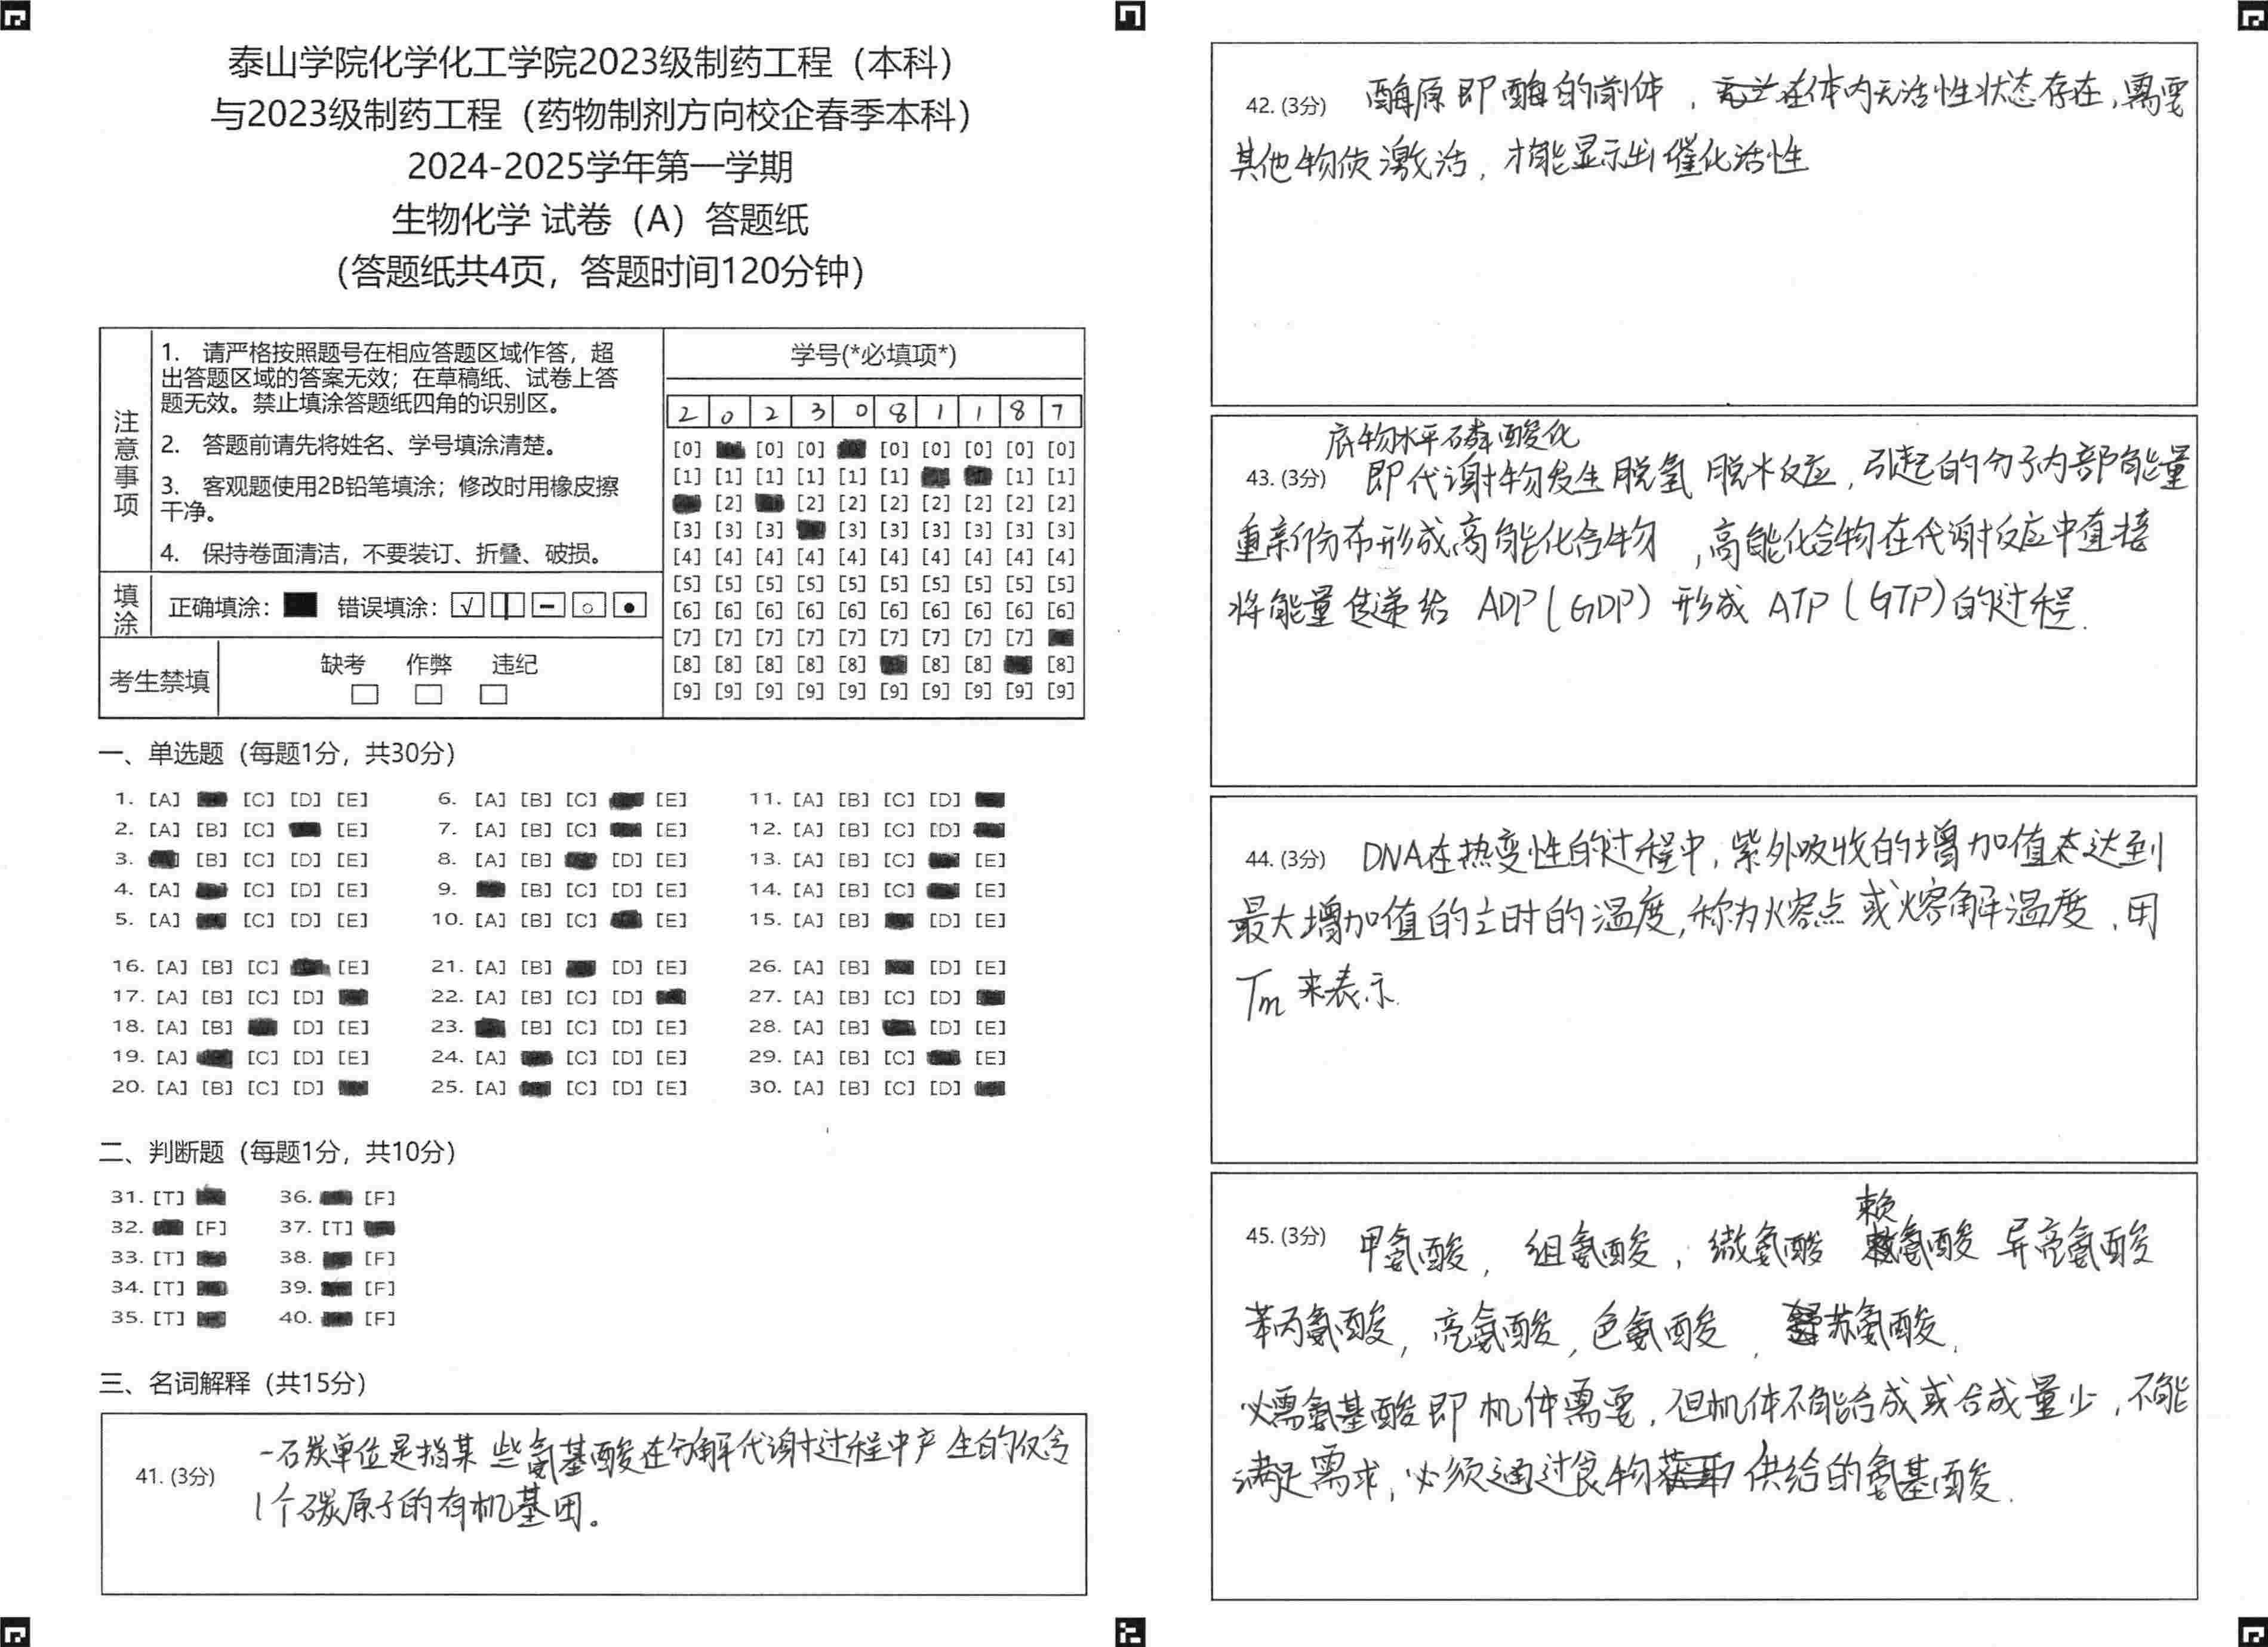 泰山学院化学化工学院2023级制药工程（本科）
与2023级制药工程（药物制剂方向校企春季本科）
2024-2025学年第一学期
生物化学 试卷（A）答题纸
（答题纸共4页，答题时间120分钟）
注意事项
1. 请严格按照题号在相应答题区域作答，超
出答题区域的答案无效；在草稿纸、试卷上答
题无效。禁止填涂答题纸四角的识别区。
2. 答题前请先将姓名、学号填涂清楚。
3. 客观题使用2B铅笔填涂；修改时用橡皮擦
干净。
4. 保持卷面清洁，不要装订、折叠、破损。
填涂 正确填涂： 错误填涂：
考生禁填 缺考 作弊 违纪
学号(*必填项*)
2 0 2 3 0 8 1 1 8 7
[0] [0] [0] [0] [0] [0] [0] [0]
[1] [1] [1] [1] [1] [1] [1] [1]
[2] [2] [2] [2] [2] [2] [2] [2]
[3] [3] [3] [3] [3] [3] [3] [3] [3]
[4] [4] [4] [4] [4] [4] [4] [4] [4] [4]
[5] [5] [5] [5] [5] [5] [5] [5] [5] [5]
[6] [6] [6] [6] [6] [6] [6] [6] [6] [6]
[7] [7] [7] [7] [7] [7] [7] [7] [7]
[8] [8] [8] [8] [8] [8] [8] [8]
[9] [9] [9] [9] [9] [9] [9] [9] [9] [9]
一、单选题（每题1分，共30分）
1. [A] [C] [D] [E] 6. [A] [B] [C] [E] 11. [A] [B] [C] [D]
2. [A] [B] [C] [E] 7. [A] [B] [C] [E] 12. [A] [B] [C] [D]
3. [B] [C] [D] [E] 8. [A] [B] [D] [E] 13. [A] [B] [C] [E]
4. [A] [C] [D] [E] 9. [B] [C] [D] [E] 14. [A] [B] [C] [E]
5. [A] [C] [D] [E] 10. [A] [B] [C] [E] 15. [A] [B] [D] [E]
16. [A] [B] [C] [E] 21. [A] [B] [D] [E] 26. [A] [B] [D] [E]
17. [A] [B] [C] [D] 22. [A] [B] [C] [D] 27. [A] [B] [C] [D]
18. [A] [B] [D] [E] 23. [B] [C] [D] [E] 28. [A] [B] [D] [E]
19. [A] [C] [D] [E] 24. [A] [C] [D] [E] 29. [A] [B] [C] [E]
20. [A] [B] [C] [D] 25. [A] [C] [D] [E] 30. [A] [B] [C] [D]
二、判断题（每题1分，共10分）
31. [T] 36. [F]
32. [F] 37. [T]
33. [T] 38. [F]
34. [T] 39. [F]
35. [T] 40. [F]
三、名词解释（共15分）
41. (3分) 一碳单位是指某些氨基酸在分解代谢过程中产生的仅含
1个碳原子的有机基团。
42. (3分) 酶原即酶的前体，在体内无活性状态存在，需要
其他物质激活，才能显示出催化活性
底物水平磷酸化
43. (3分) 即代谢物发生脱氢 脱水反应，引起的分子内部能量
重新分布形成高能化合物，高能化合物在代谢反应中直接
将能量传递给 ADP(GDP) 形成 ATP(GTP)的过程.
44. (3分) DNA在热变性的过程中，紫外吸收的增加值达到
最大增加值的½时的温度，称为熔点或熔解温度，用
Tm 来表示.
45. (3分) 甲氨酸，组氨酸，缬氨酸 赖氨酸 异亮氨酸
苯丙氨酸，亮氨酸，色氨酸，苏氨酸.
必需氨基酸即机体需要，但机体不能合成或合成量少，不能
满足需求，必须通过食物供给的氨基酸.